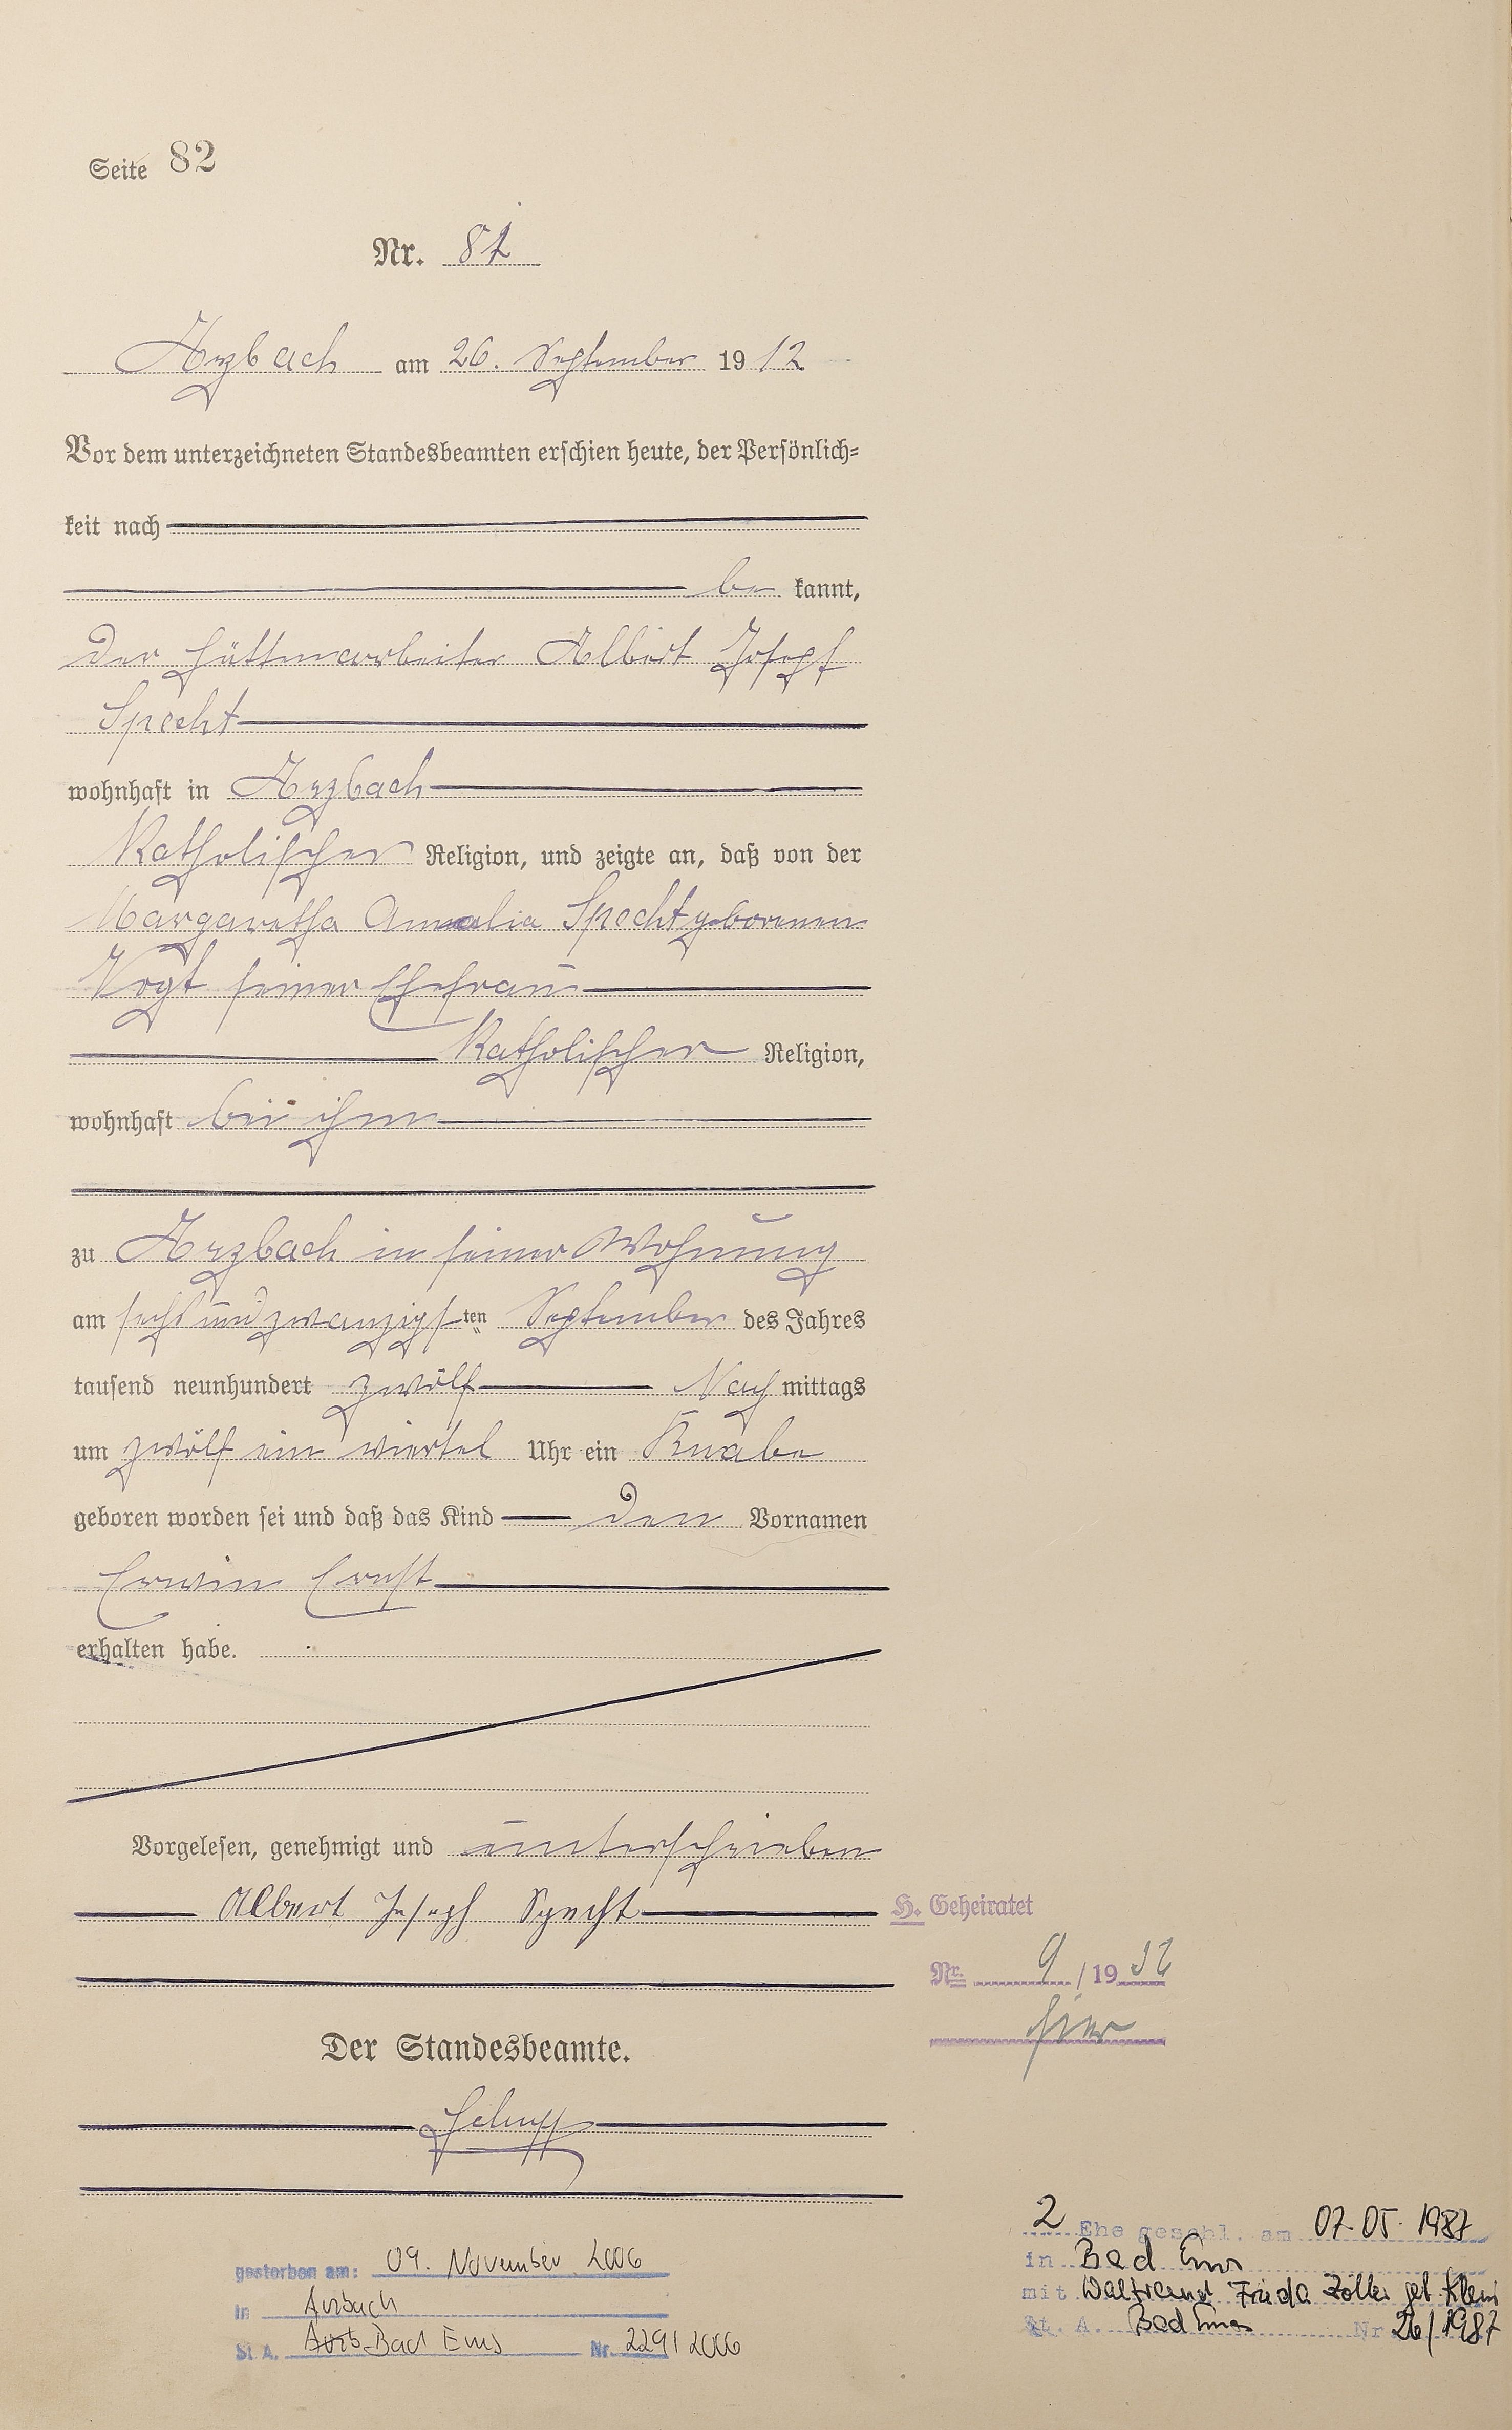 Seite 82
Nr. 82
Arzbach am 26. September 1912
Vor dem unterzeichneten Standesbeamten erschien heute, der Persönlich=
keit nach
be kannt,
der Hüttenarbeiter Albert Josef
Specht
wohnhaft in Arzbach
Katholischer Religion, und zeigte an, daß von der
Margaretha Amalia Specht geborenen
Vogt seiner Ehefrau
Katholischer Religion,
wohnhaft bei ihm
zu Arzbach in seiner Wohnung
am sechs und zwanzigsten September des Jahres
tausend neunhundert zwölf Nach mittags
um zwölf ein viertel Uhr ein Knabe
geboren worden sei und daß das Kind den Vornamen
Erwin Ernst
erhalten habe.
Vorgelesen, genehmigt und unterschrieben
Albert Joseph Specht
H. Geheiratet
Nr. 9 / 19 32
hier
Der Standesbeamte.
gestorben am: 09. November 2006
in Arzbach
St. A. Bad Ems Nr. 229/2006
2 Ehe geschl. am 07.05.1987
in Bad Ems
mit Waltraud Frieda Zöller geb. Klein
St. A. Bad Ems Nr 26/1987